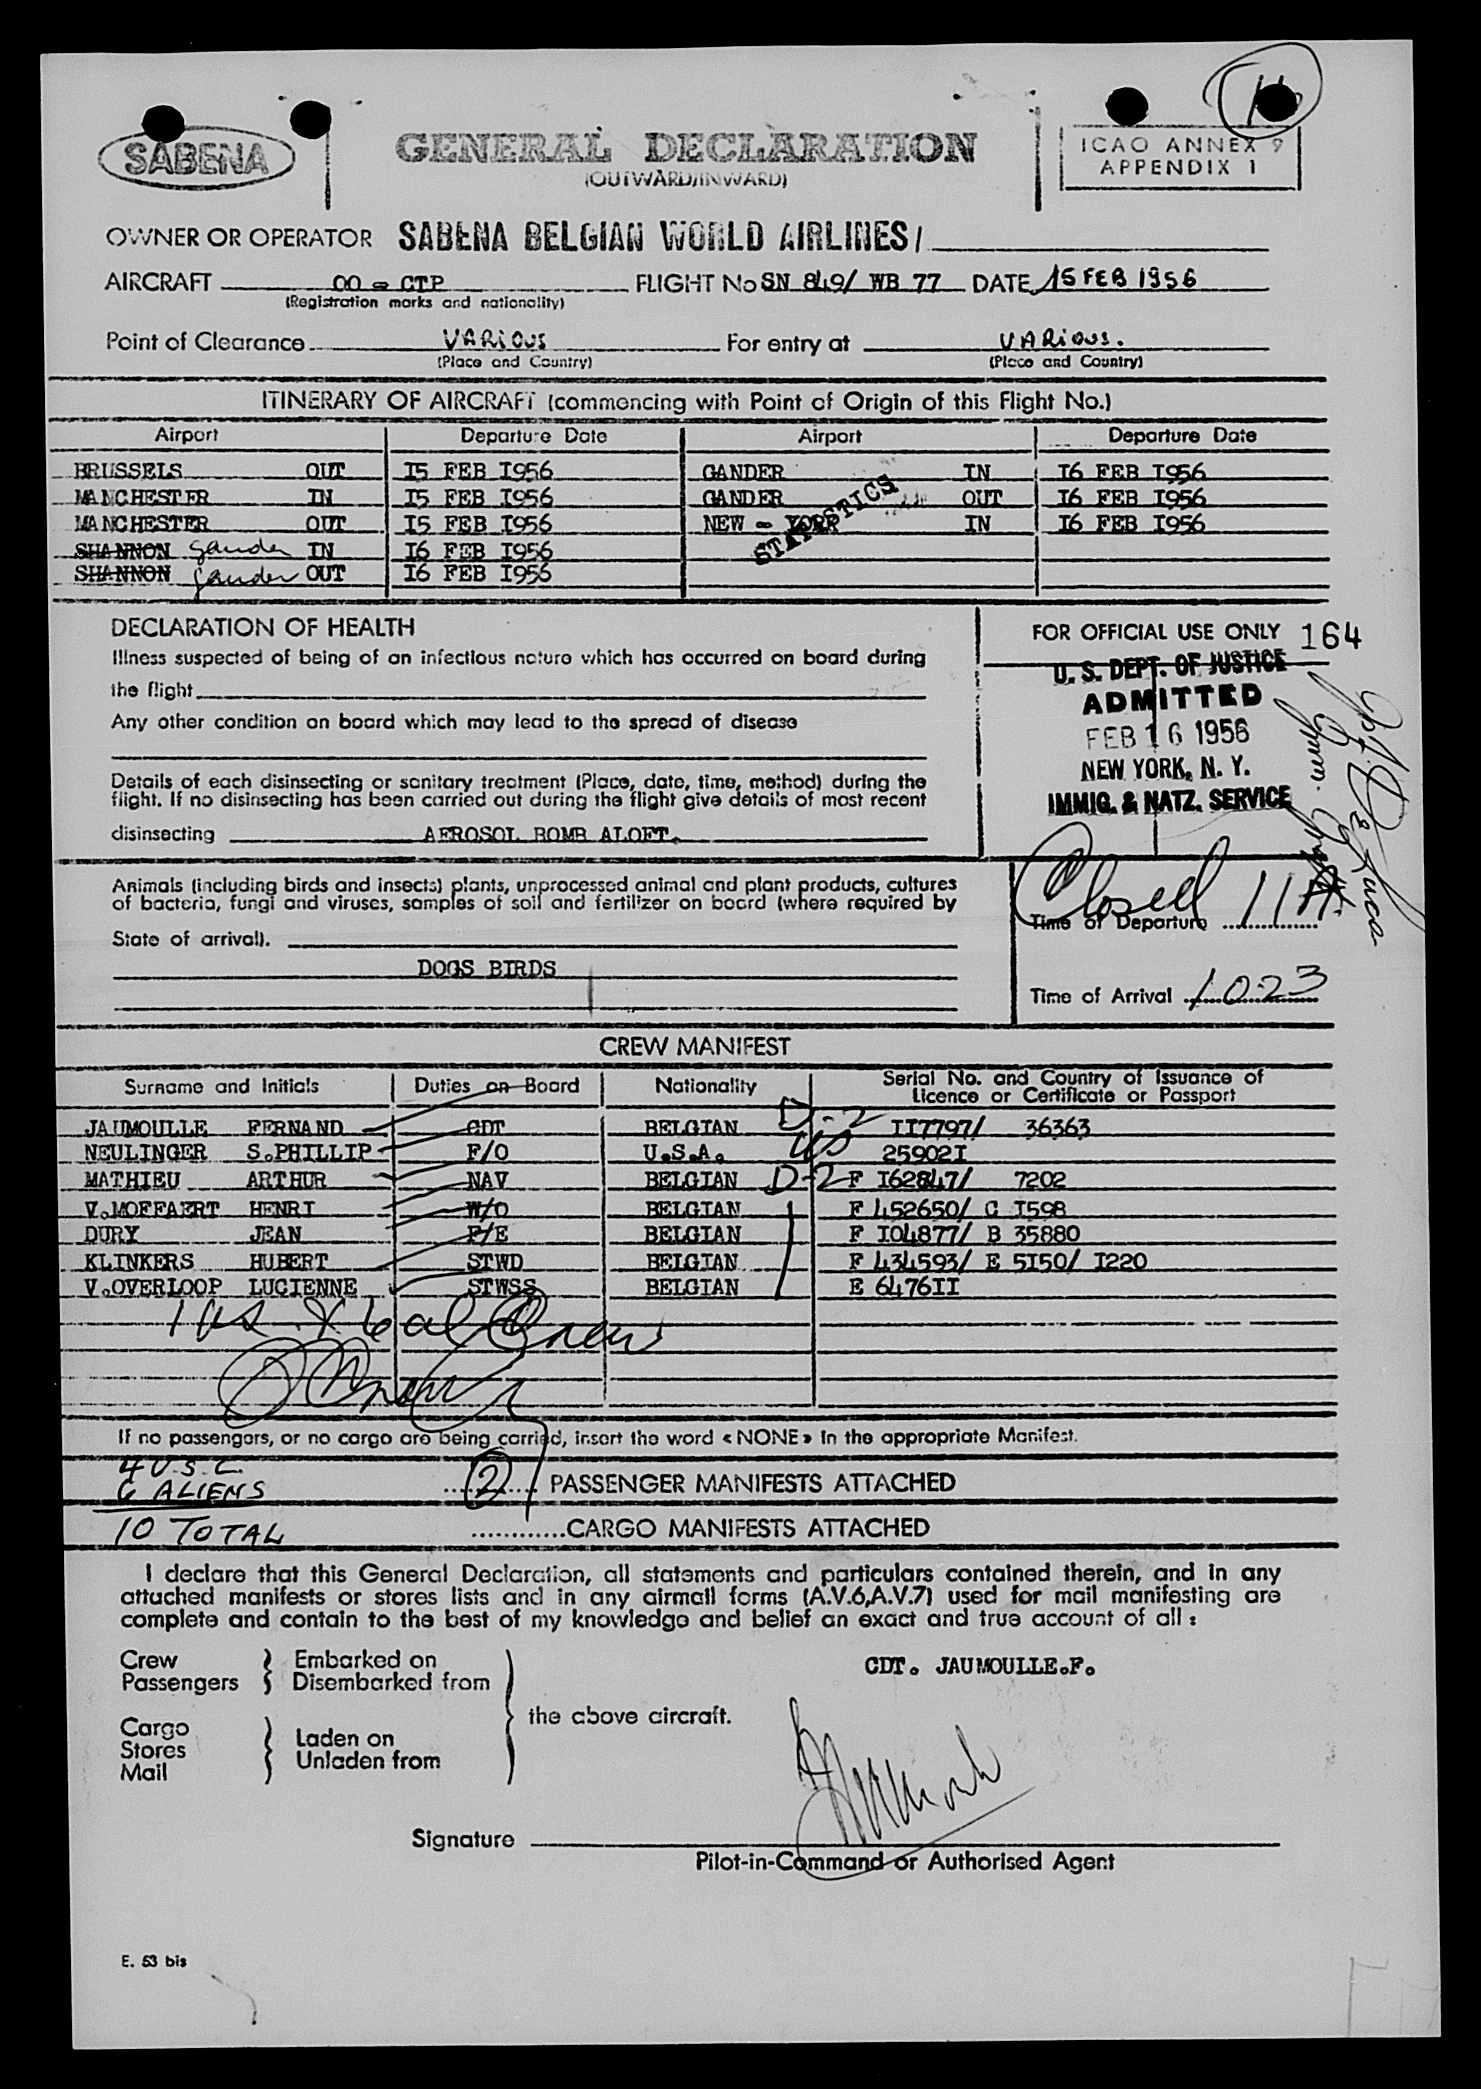 SABENA
GENERAL DECLARATION
(OUTWARD/INWARD)
ICAO ANNEX 9
APPENDIX 1
OWNER OR OPERATOR SABENA BELGIAN WORLD AIRLINES/
AIRCRAFT OO = CTP FLIGHT No SN 849/ WB 77 DATE 15 FEB 1956
(Registration marks and nationality)
Point of Clearance VARIOUS For entry at VARIOUS.
(Place and Country) (Place and Country)
ITINERARY OF AIRCRAFT (commencing with Point of Origin of this Flight No.)
Airport Departure Date Airport Departure Date
BRUSSELS OUT I5 FEB I956 GANDER IN I6 FEB I956
MANCHESTER IN I5 FEB I956 GANDER OUT I6 FEB I956
MANCHESTER OUT I5 FEB I956 NEW = YORK IN I6 FEB I956
STATISTICS
SHANNON Gander IN I6 FEB I956
SHANNON Gander OUT I6 FEB I956
DECLARATION OF HEALTH
Illness suspected of being of an infectious nature which has occurred on board during
the flight
Any other condition on board which may lead to the spread of disease
Details of each disinsecting or sanitary treatment (Place, date, time, method) during the
flight. If no disinsecting has been carried out during the flight give details of most recent
disinsecting AEROSOL BOMB ALOFT.
FOR OFFICIAL USE ONLY 164
U. S. DEPT. OF JUSTICE
ADMITTED
FEB 16 1956
NEW YORK, N. Y.
IMMIG. & NATZ. SERVICE
Animals (including birds and insects) plants, unprocessed animal and plant products, cultures
of bacteria, fungi and viruses, samples of soil and fertilizer on board (where required by
State of arrival).
DOGS BIRDS
Closed 11
Time of Departure
Time of Arrival 1023
CREW MANIFEST
Surname and Initials Duties on Board Nationality Serial No. and Country of Issuance of
Licence or Certificate or Passport
JAUMOULLE FERNAND CDT BELGIAN D-2 II7797/ 36363
NEULINGER S.PHILLIP F/O U.S.A. US 25902I
MATHIEU ARTHUR NAV BELGIAN D-2 F I62847/ 7202
V.MOFFAERT HENRI W/O BELGIAN F 452650/ C I598
DURY JEAN F/E BELGIAN F I04877/ B 35880
KLINKERS HUBERT STWD BELGIAN F 434593/ E 5I50/ I220
V.OVERLOOP LUCIENNE STWSS BELGIAN E 6476II
1 us & 6 al Crew
If no passengers, or no cargo are being carried, insert the word « NONE » in the appropriate Manifest.
4 U.S.C.
6 ALIENS
2 PASSENGER MANIFESTS ATTACHED
10 TOTAL
CARGO MANIFESTS ATTACHED
I declare that this General Declaration, all statements and particulars contained therein, and in any
attached manifests or stores lists and in any airmail forms (A.V.6,A.V.7) used for mail manifesting are
complete and contain to the best of my knowledge and belief an exact and true account of all :
Crew Embarked on
Passengers Disembarked from
the above aircraft.
Cargo
Stores Laden on
Mail Unladen from
CDT. JAUMOULLE.F.
Signature
Pilot-in-Command or Authorised Agent
E. 53 bis